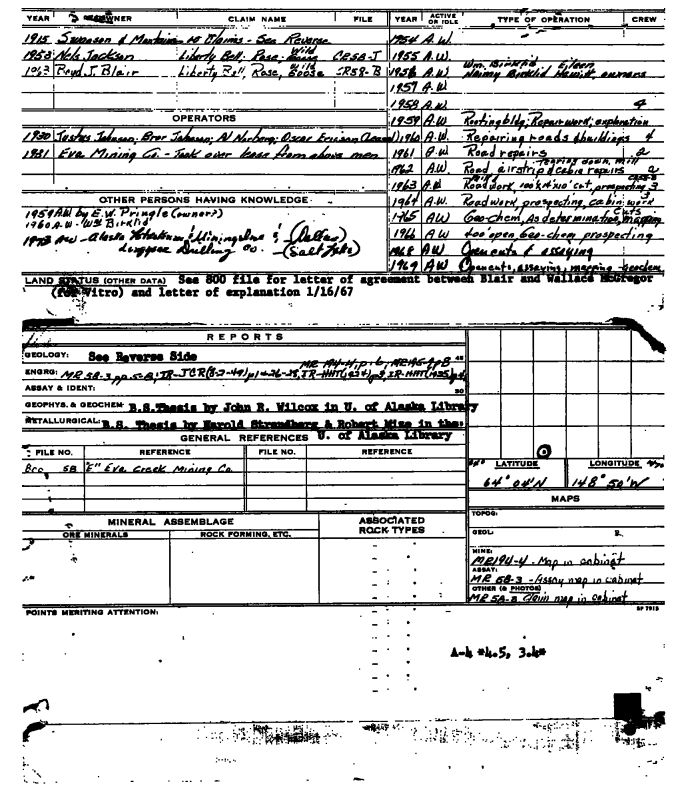 YEAR OWNER CLAIM NAME FILE YEAR ACTIVE OR IDLE TYPE OF OPERATION CREW
1915 Swanson & 10 Claims - See Reverse 1954 A.W.
1953 Nels Jackson Liberty Bell, Rose, Wild CR58-J 1955 A.W.
1963 Boyd J. Blair Liberty Bell, Rose, Wild Goose CR58-B 1956 A.W. Wm. Birklid Eileen
Birklid owners
1957 A.W.
1958 A.W. 4
OPERATORS 1959 A.W. Rooting bldg; Repair work; exploration
1930 Justus Johnson; Bror Johnson; Al Norberg; Oscar Ericson (Lessees) 1960 A.W. Repairing roads & buildings 4
1931 Eva Mining Co. - Took over lease from above men 1961 A.W. Road repairs 2
1962 A.W. Road, airstrip & cabin repairs 2
tearing down mill
OTHER PERSONS HAVING KNOWLEDGE 1963 A.W. Road work, cut, prospecting 3
1959 AW by E.W. Pringle (owner?) 1964 A.W. Road work, prospecting, cabin work 3
1960 A.W. - Wm Birklid 1965 AW Geo-chem, As determination, mapping
cuts
1973 AW - Alaska & (Dallas) 1966 AW 400' open, Geo-chem prospecting
Longyear Drilling Co. - (Salt Lake) 1968 AW Opencuts & assaying
1969 AW Opencuts, assaying, mapping - geochem
LAND STATUS (OTHER DATA) See 800 file for letter of agreement between Blair and Wallace McGregor
(for Vitro) and letter of explanation 1/16/67
REPORTS
GEOLOGY: See Reverse Side
MR 194-4, p. 6; MR 195-1, p B
ENGRG: MR 58-3 pp. 5-8; IR-JCR(8-2-49) p1+26-28, IR-HHT(1924) p8, IR-HHT(1925)
ASSAY & IDENT:
GEOPHYS. & GEOCHEM: B.S. Thesis by John R. Wilcox in U. of Alaska Library
METALLURGICAL: B.S. Thesis by Harold Strandberg & Robert Mize in the
GENERAL REFERENCES U. of Alaska Library
FILE NO. REFERENCE FILE NO. REFERENCE
Bro 58 "E" Eva Creek Mining Co.
LATITUDE LONGITUDE
64° 04'N 148° 50'W
MAPS
MINERAL ASSEMBLAGE ASSOCIATED ROCK TYPES
ORE MINERALS ROCK FORMING, ETC.
TOPOG:
GEOL:
MINE:
MR194-4 - Map in cabinet
ASSAY:
MR 58-3 - Assay map in cabinet
OTHER (& PHOTOS)
MR 58-8 Claim map in cabinet
POINTS MERITING ATTENTION: SP 7915
A-4 *4.5, 3.4*